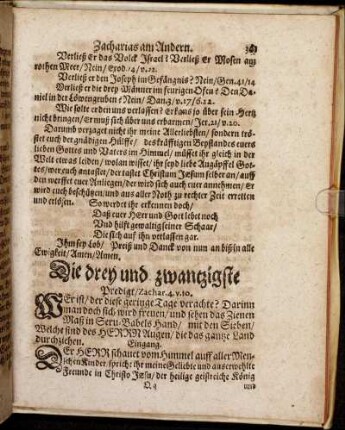 Zacharias am Andern.
Verließ Er das Volck Israel? Verließ Er Mosen am
rothen Meer/Nein/Exod. 14/v. 12.
Verließ er den Joseph im Gefängnis? Nein/Gen. 41/14
Verließ er die drey Männer im feurigen Ofen? Den Da-
niel in der Löwengruben? Nein/Dan. 3/v. 17/6. 22.
Wie solte er denn uns verlassen? Er kans jo über sein Hertz
nicht bringen/Er muß sich über uns erbarmen/Jer. 31/v. 20.
Darumb verzaget nicht ihr meine Allerliebsten/sondern trö-
stet euch der gnädigen Hülffe/ des kräfftigen Beystandes euers
lieben Gottes und Vaters im Himmel/ müsset ihr gleich in der
Welt etwas leiden/wolan wisset/ihr seyd liebe Augäpffel Got-
tes/wer euch antastet/der tastet Christum Jesum selber an/auff
den werffet euer Anliegen/der wird sich auch euer annehmen/Er
wird euch beschützen/und aus aller Noth zu rechter Zeit erretten
und erlösen. So werdet ihr erkennen doch/
Daß euer Herr und Gott lebet noch
Und hilft gewaltig seiner Schaar/
Die sich auf ihn verlassen gar.
Ihm sey Lob/ Preiß und Danck von nun an biß in alle
Ewigkeit/Amen/Amen.
Die drey und zwantzigste
Predigt/Zachar. 4. v. 10.
WEr ist/ der diese geringe Tage verachte? Darinn
man doch sich wird freuen/ und sehen das Zienen
Maß in Seru-Babels Hand/ mit den Sieben/
Welche sind des HERRN Augen/ die das gantze Land
durchziehen. Eingang.
DEr HERR schauet vom Himmel auff aller Men-
schen Kinder/spricht ihr meine Geliebte und auserwehlte
Freunde in Christo JEsu/ der heilige geistreiche König
und